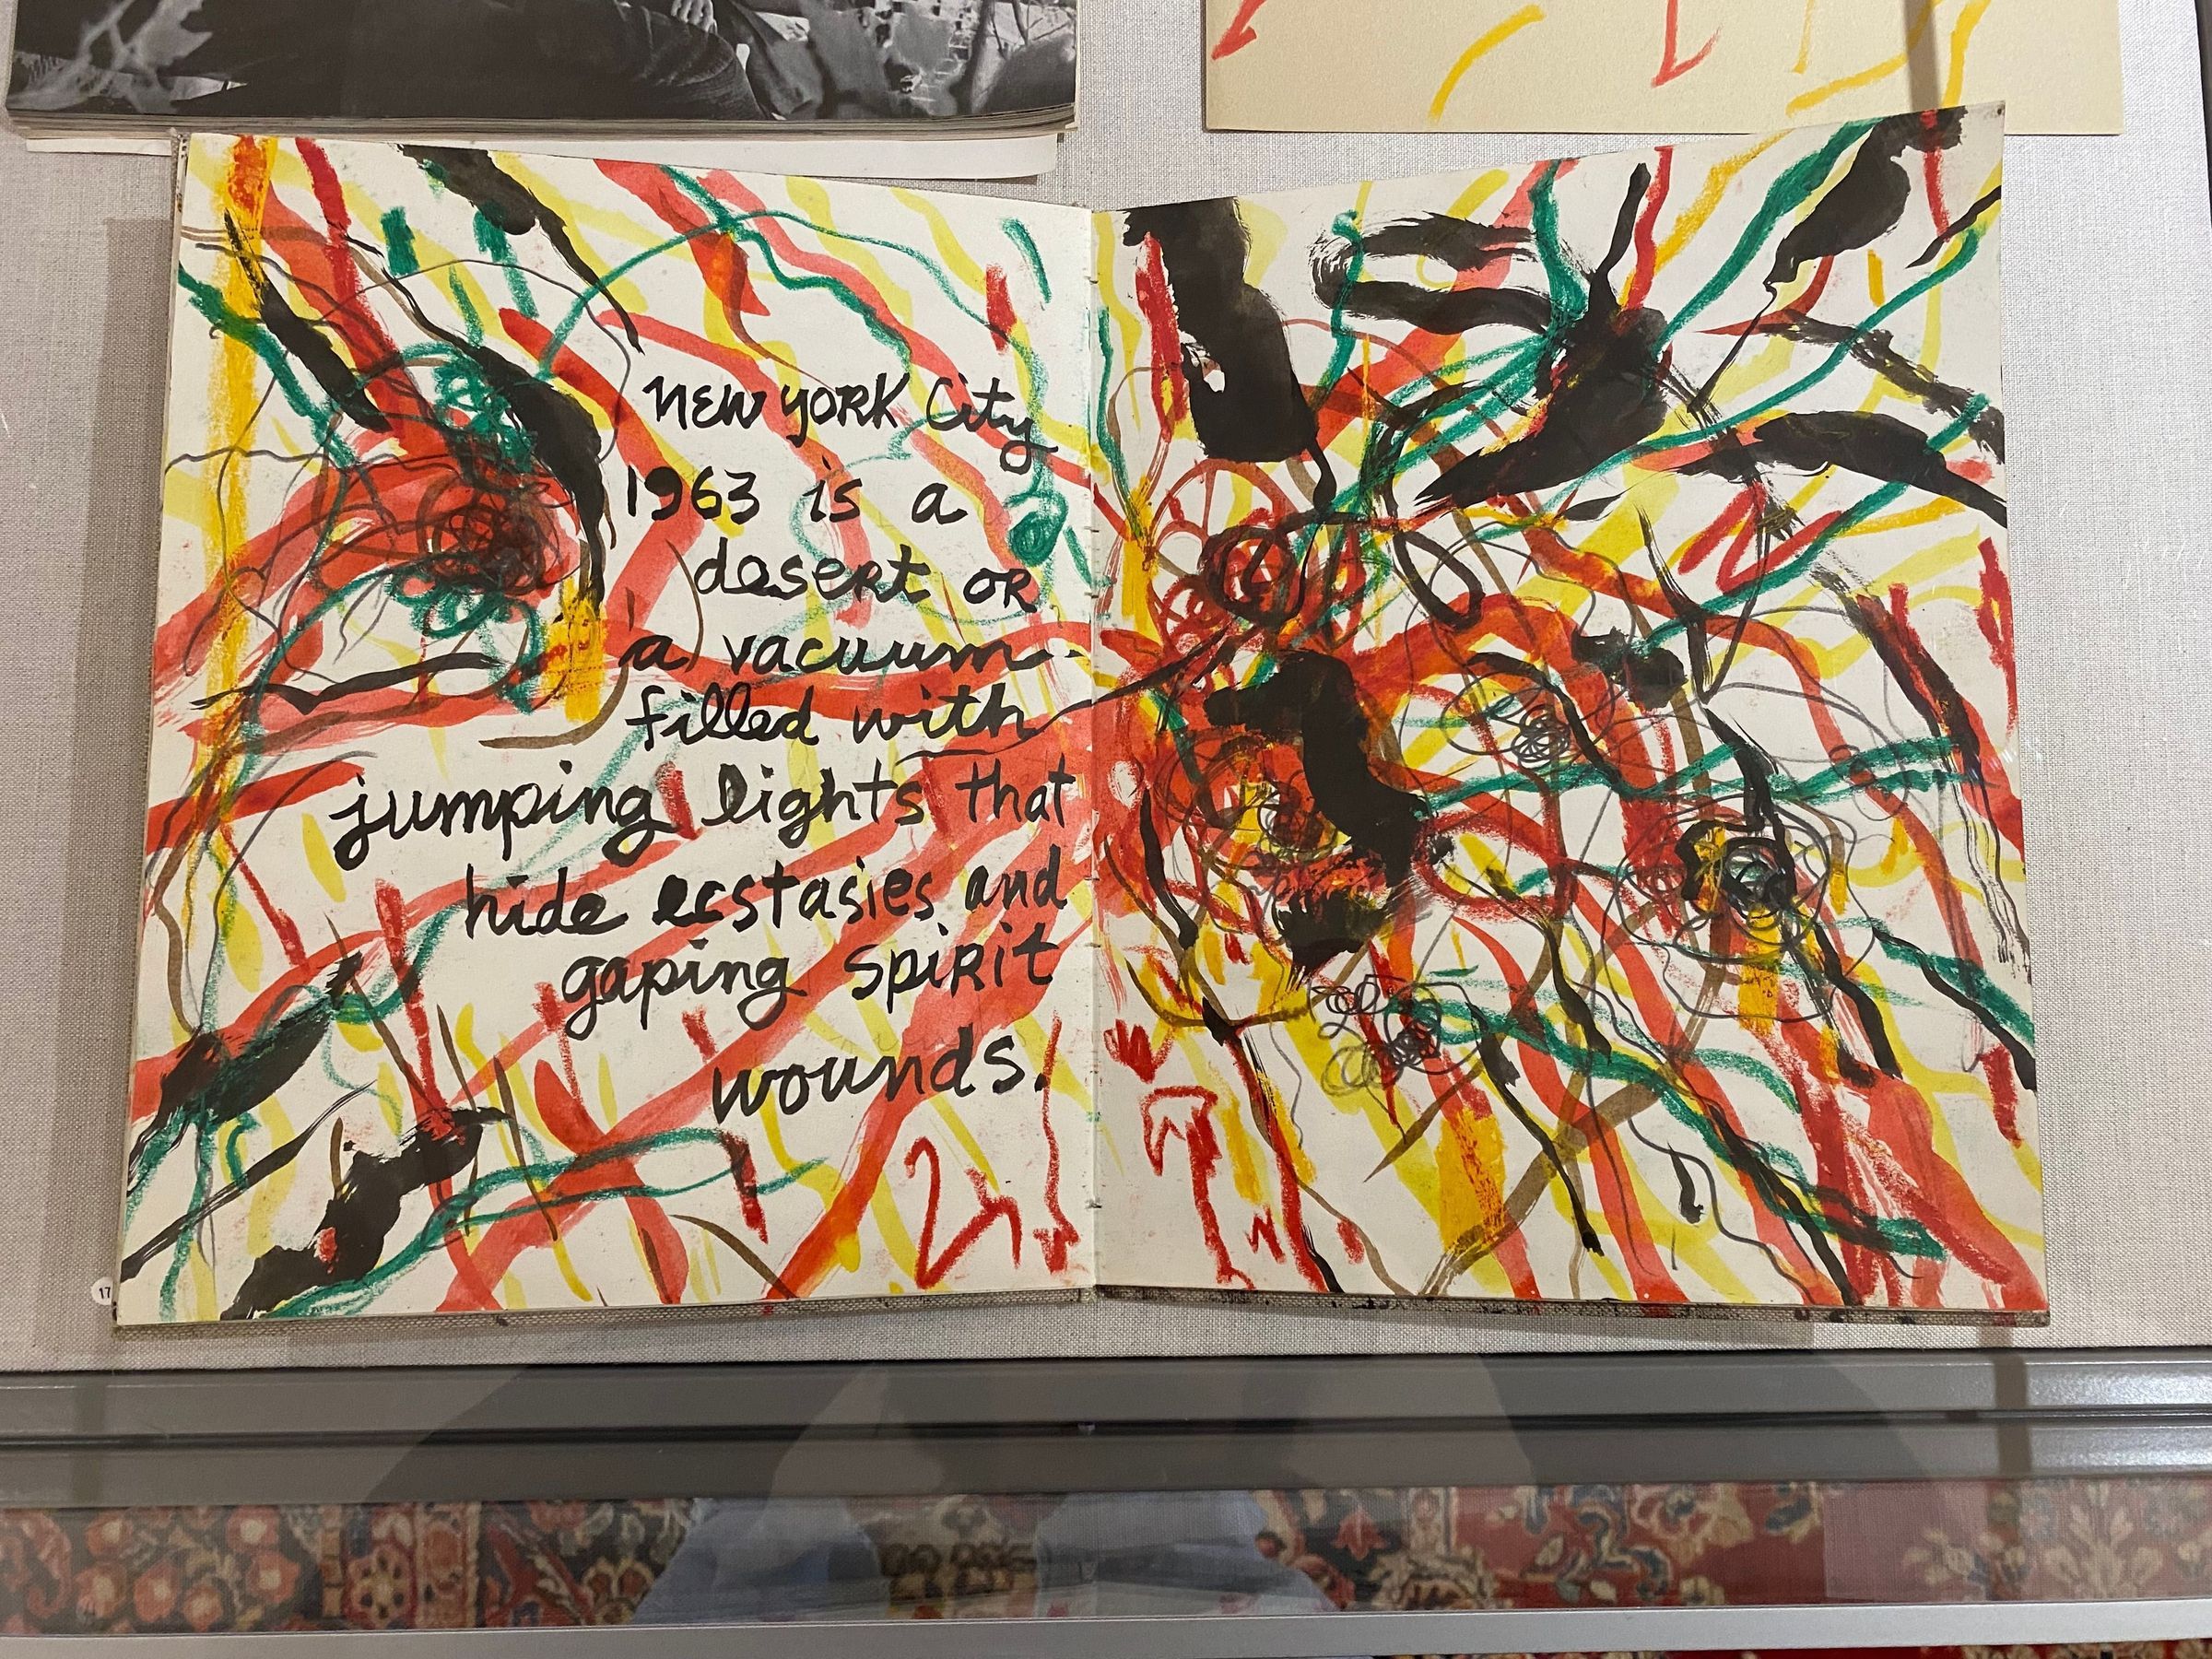 NEW YORK City
1963 is a
desert OR
a vacuum
filled with
jumping lights that
hide ecstasies and
gaping SPiRit
wounds.
17